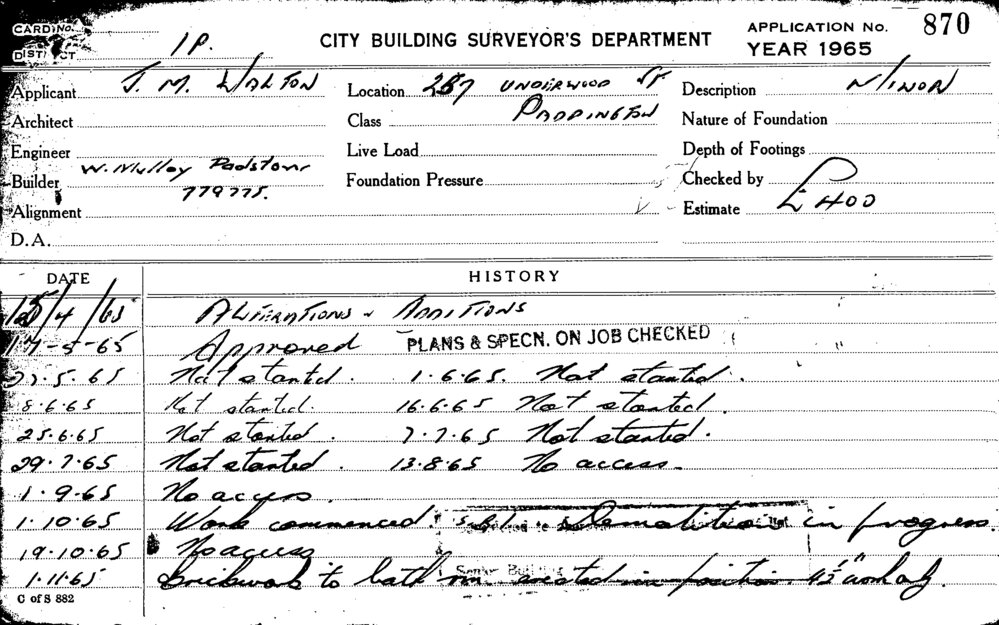 CARD No. 1P. CITY BUILDING SURVEYOR'S DEPARTMENT APPLICATION No. 870
DISTRICT YEAR 1965
Applicant J. M. WALTON Location 287 UNDERWOOD ST Description MINOR
Architect Class PADDINGTON Nature of Foundation
Engineer Live Load Depth of Footings
Builder W. Mulloy Padstow 779775. Foundation Pressure Checked by
Alignment Estimate £400
D.A.
DATE HISTORY
/4/65 ALTERATIONS & ADDITIONS
17-5-65 Approved PLANS & SPECN. ON JOB CHECKED
5.65 Not started. 1.6.65. Not started.
8.6.65 Not started. 16.6.65 Not started.
25.6.65 Not started. 7.7.65 Not started.
29.7.65 Not started. 13.8.65 No access.
1.9.65 No access.
1.10.65 Work commenced. Demolition in progress.
19.10.65 No access
1.11.65 Brickwork to bath rm erected in position 4½" work
C of S 882